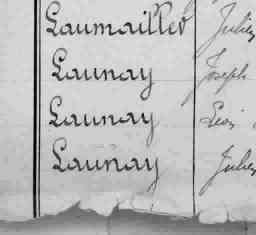 Laumailler Julien
Launay Joseph
Launay Léon
Launay Julien